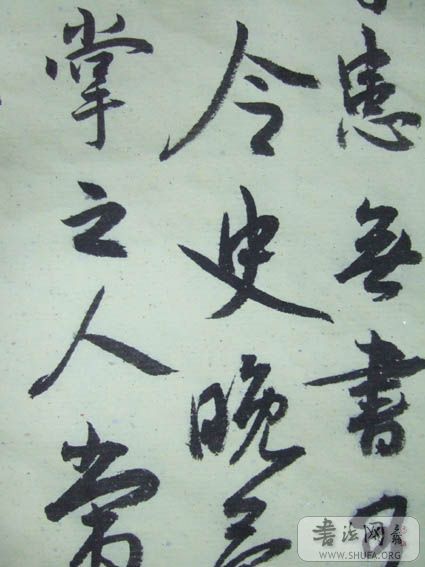 患無書
令史晚
掌之人常
書法网
WWW.SHUFA.ORG